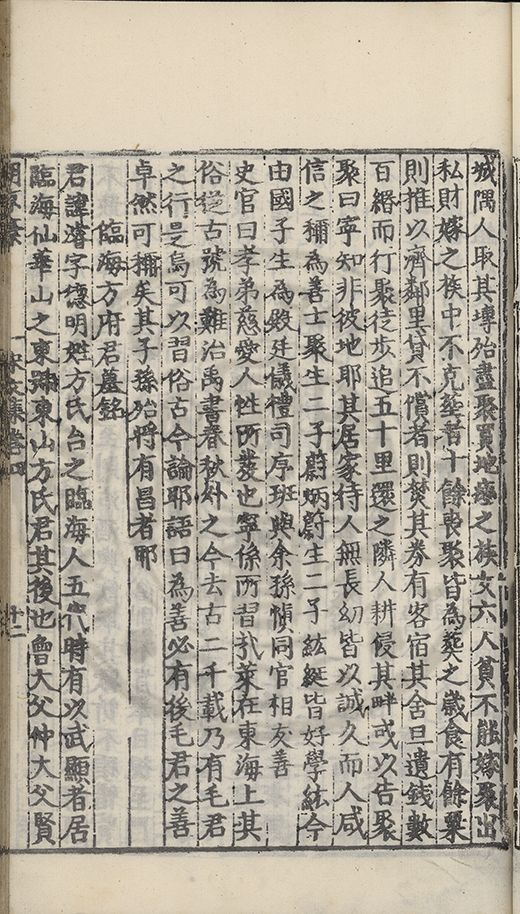 城隅人取其塼殆盡聚買地瘞之族女六人貧不能嫁聚出
私財嫁之族中不克塟者十餘喪聚皆為葬之歲食有餘粟
則推以濟鄰里貸不償者則焚其券有客宿其舍旦遺錢數
百緡而行聚徒步追五十里還之隣人耕侵其畔或以告聚
聚曰寧知非彼地耶其居家待人無長幼皆以誠久而人咸
信之稱為善士聚生二子蔚炳蔚生二子紘綖皆好學紘今
由國子生為殿廷儀禮司序班與余孫愼同官相友善
史官曰孝弟慈愛人性所發也寧係所習哉萊在東海上其
俗從古號為難治禹書春秋外之今去古二千載乃有毛君
之行是烏可以習俗古今論耶語曰為善必有後毛君之善
卓然可稱矣其子孫殆將有昌者耶
臨海方府君墓銘
君諱濬字德明姓方氏台之臨海人五代時有以武顯者居
臨海仙華山之東號東山方氏君其後也曾大父仲大父賢
宋文集卷四 十二